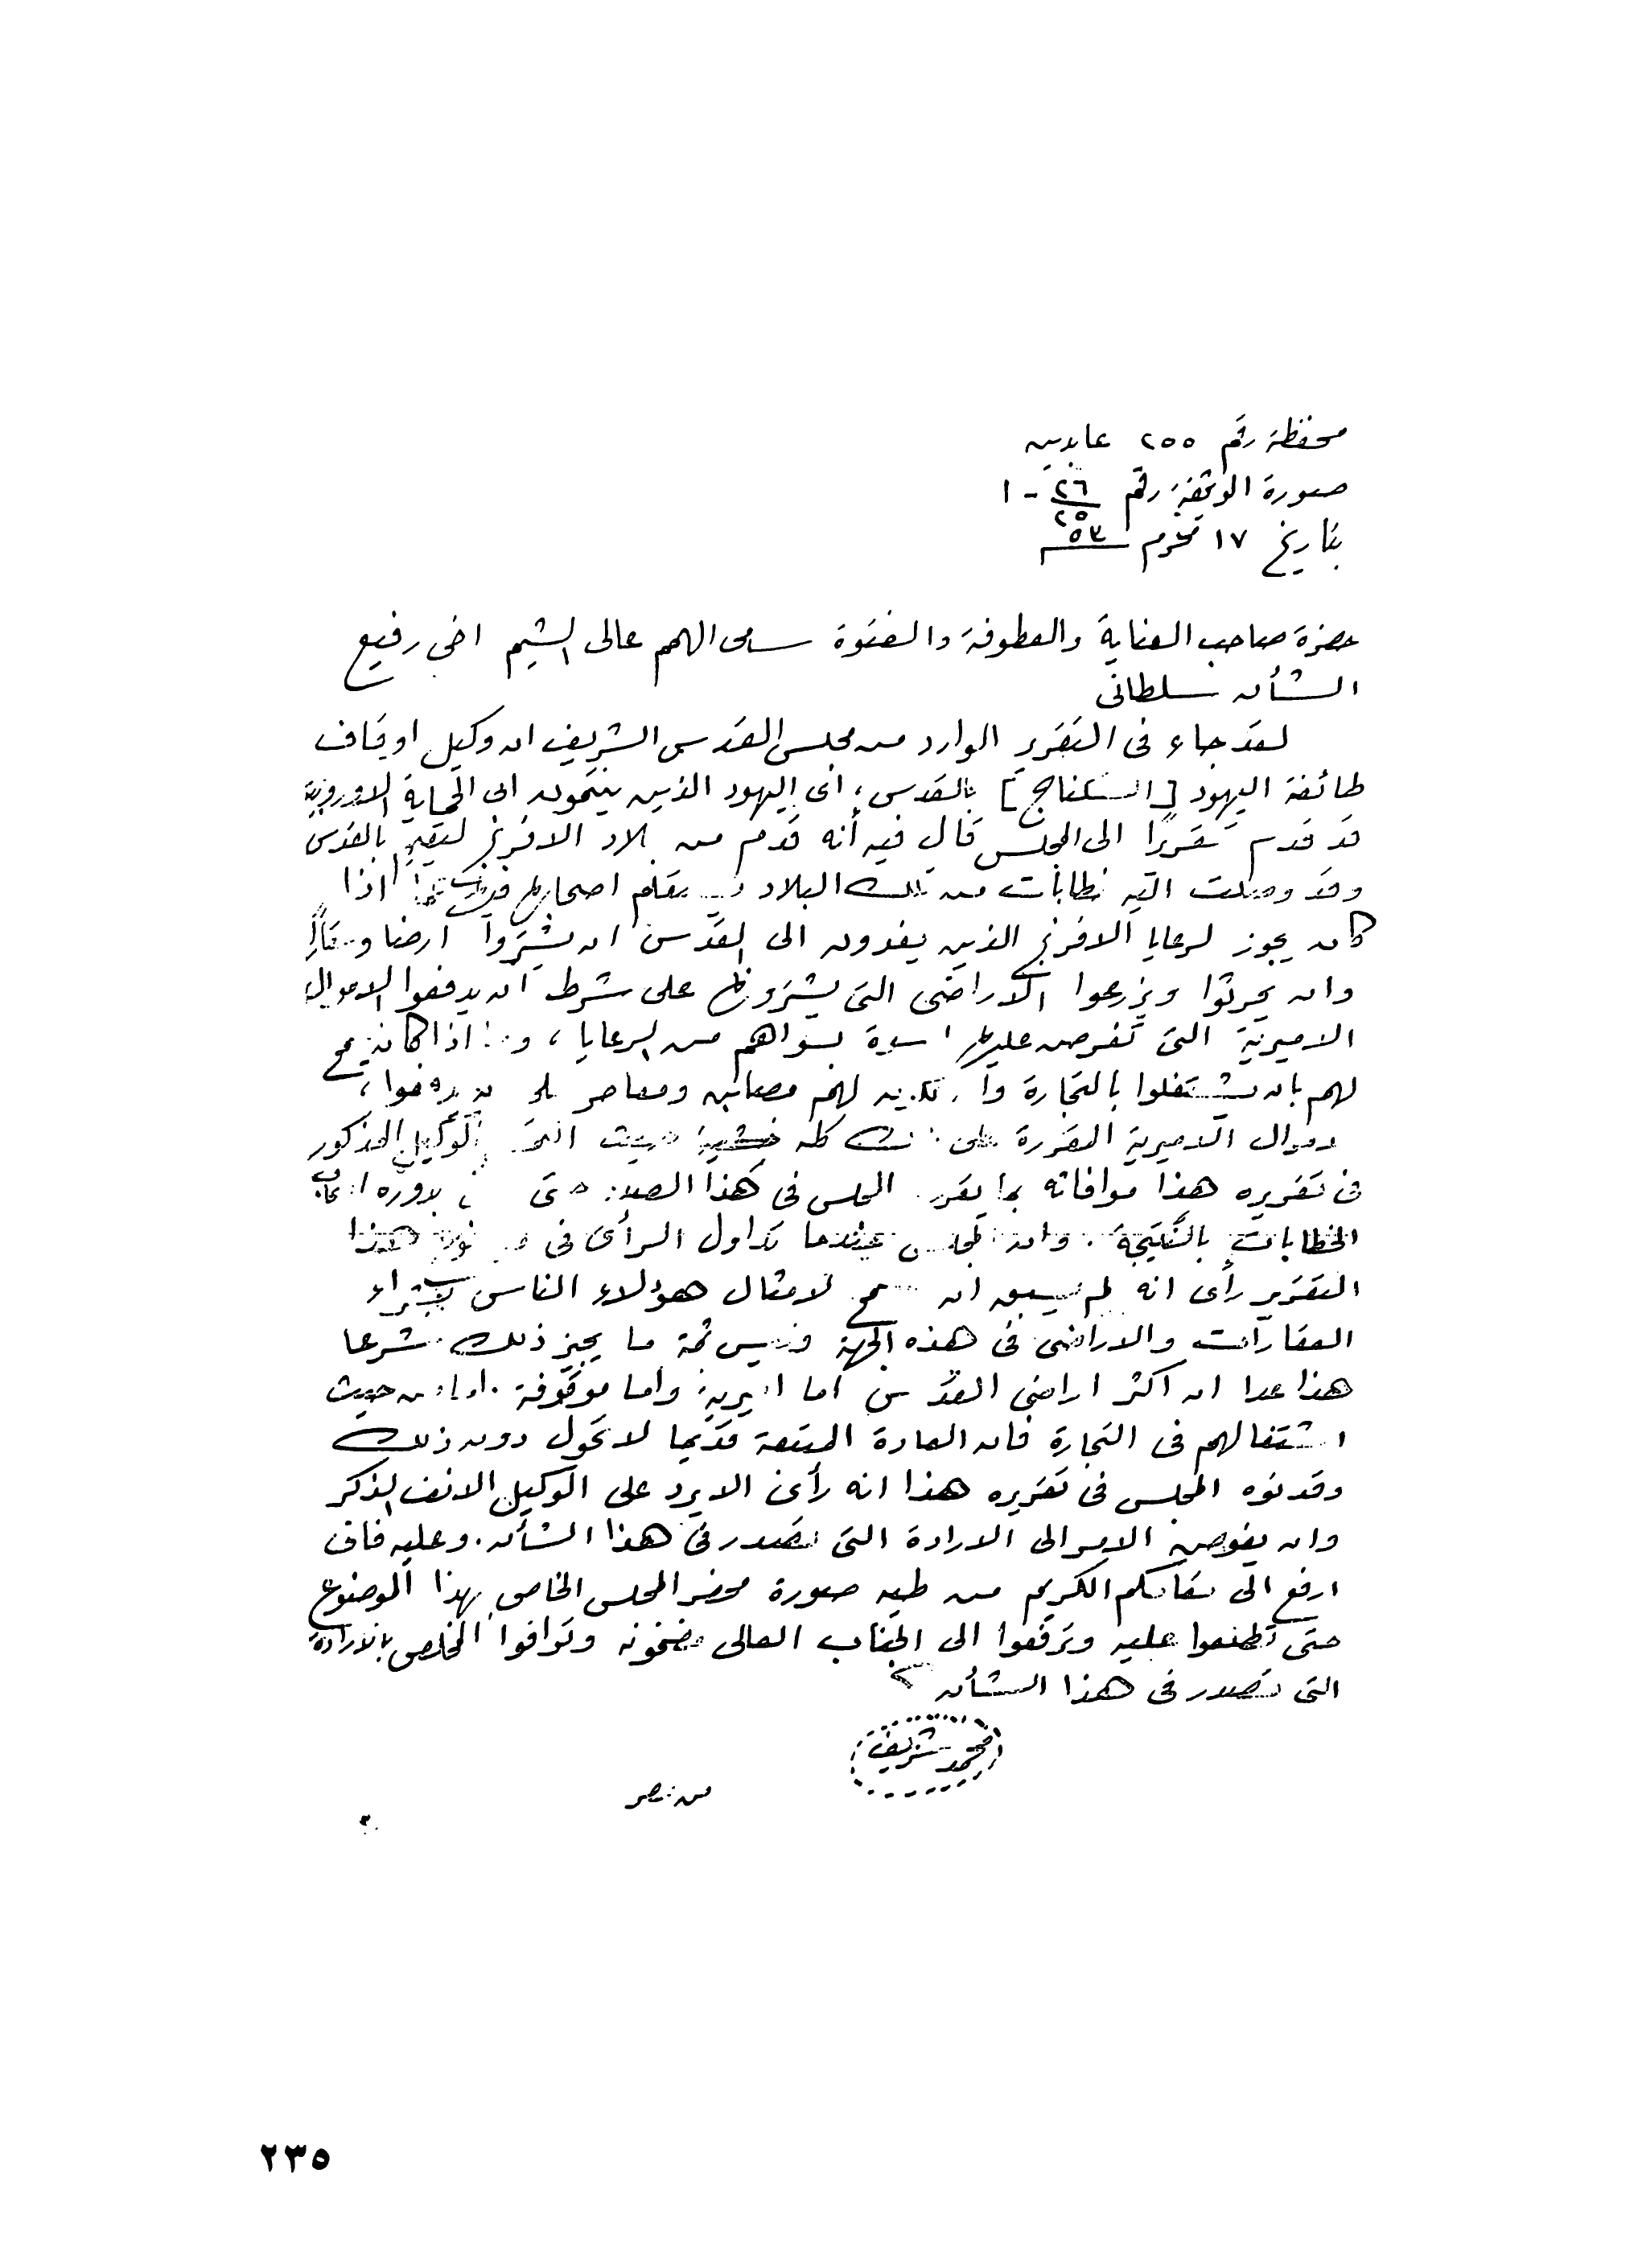 محفظة رقم ٢٥٥ عابدين
صورة الوثيقة رقم ٢٦ - ١
٢٥
بتاريخ ١٧ محرم ٥٣
حضرة صاحب العناية والعطوفة والفتوة سامى الهمم عالى الشيم اخى رفيع
الشأن سلطانى
لقد جاء فى التقرير الوارد من مجلس القدس الشريف ان وكيل اوقاف
طائفة اليهود [السكناج] بالقدس، اى اليهود الذين ينتمون الى الحماية الاوروبية
قد قدم تقريرًا الى المجلس قال فيه أنه قدم من بلاد الافرنج ليقيم بالقدس
وقد وصلت اليه خطابات من تلك البلاد بقلم اصحابها اذا
كان يجوز لرعايا الافرنج الذين يفدون الى القدس ان يشتروا ارضا
وان يحرثوا ويزرعوا الاراضى التى يشترونها على شرط ان يدفعوا الاموال
الاميرية التى تفرض عليها اسوة بسواهم من الرعايا، اذا كان يسمح
لهم بان يشتغلوا بالتجارة تكون لهم مصابن ومعاصر يدفعوا
الاموال الاميرية المقررة على ذلك كله حيث الوكيل المذكور
فى تقريره هذا موافاته بما يقرر المجلس فى هذا الصدد حتى بدوره
الخطابات بالنتيجة . وان المجلس عندما تداول الرأى فى هذا
التقرير رأى انه لم يسبق ان سمح لامثال هؤلاء الناس بشراء
العقارات والاراضى فى هذه الجهة وليس ثمة ما يجيز ذلك شرعا
هذا عدا ان اكثر اراضى القدس اما اميرية واما موقوفة . اما من حيث
اشتغالهم فى التجارة فان العادة المتبعة قديما لا تحول دون ذلك
وقد نوه المجلس فى تقريره هذا انه رأى الا يرد على الوكيل الانف الذكر
وان يفوض الامر الى الارادة التى تصدر فى هذا الشأن . وعليه فانى
ارفع الى مقامكم الكريم من طيه صورة محضر المجلس الخاص بهذا الموضوع
حتى تطلعوا عليه وترفعوا الى الجناب العالى مضمونه وتوافوا المخلص بالارادة
التى تصدر فى هذا الشأن
محمد شريف
من مصر
٢٣٥